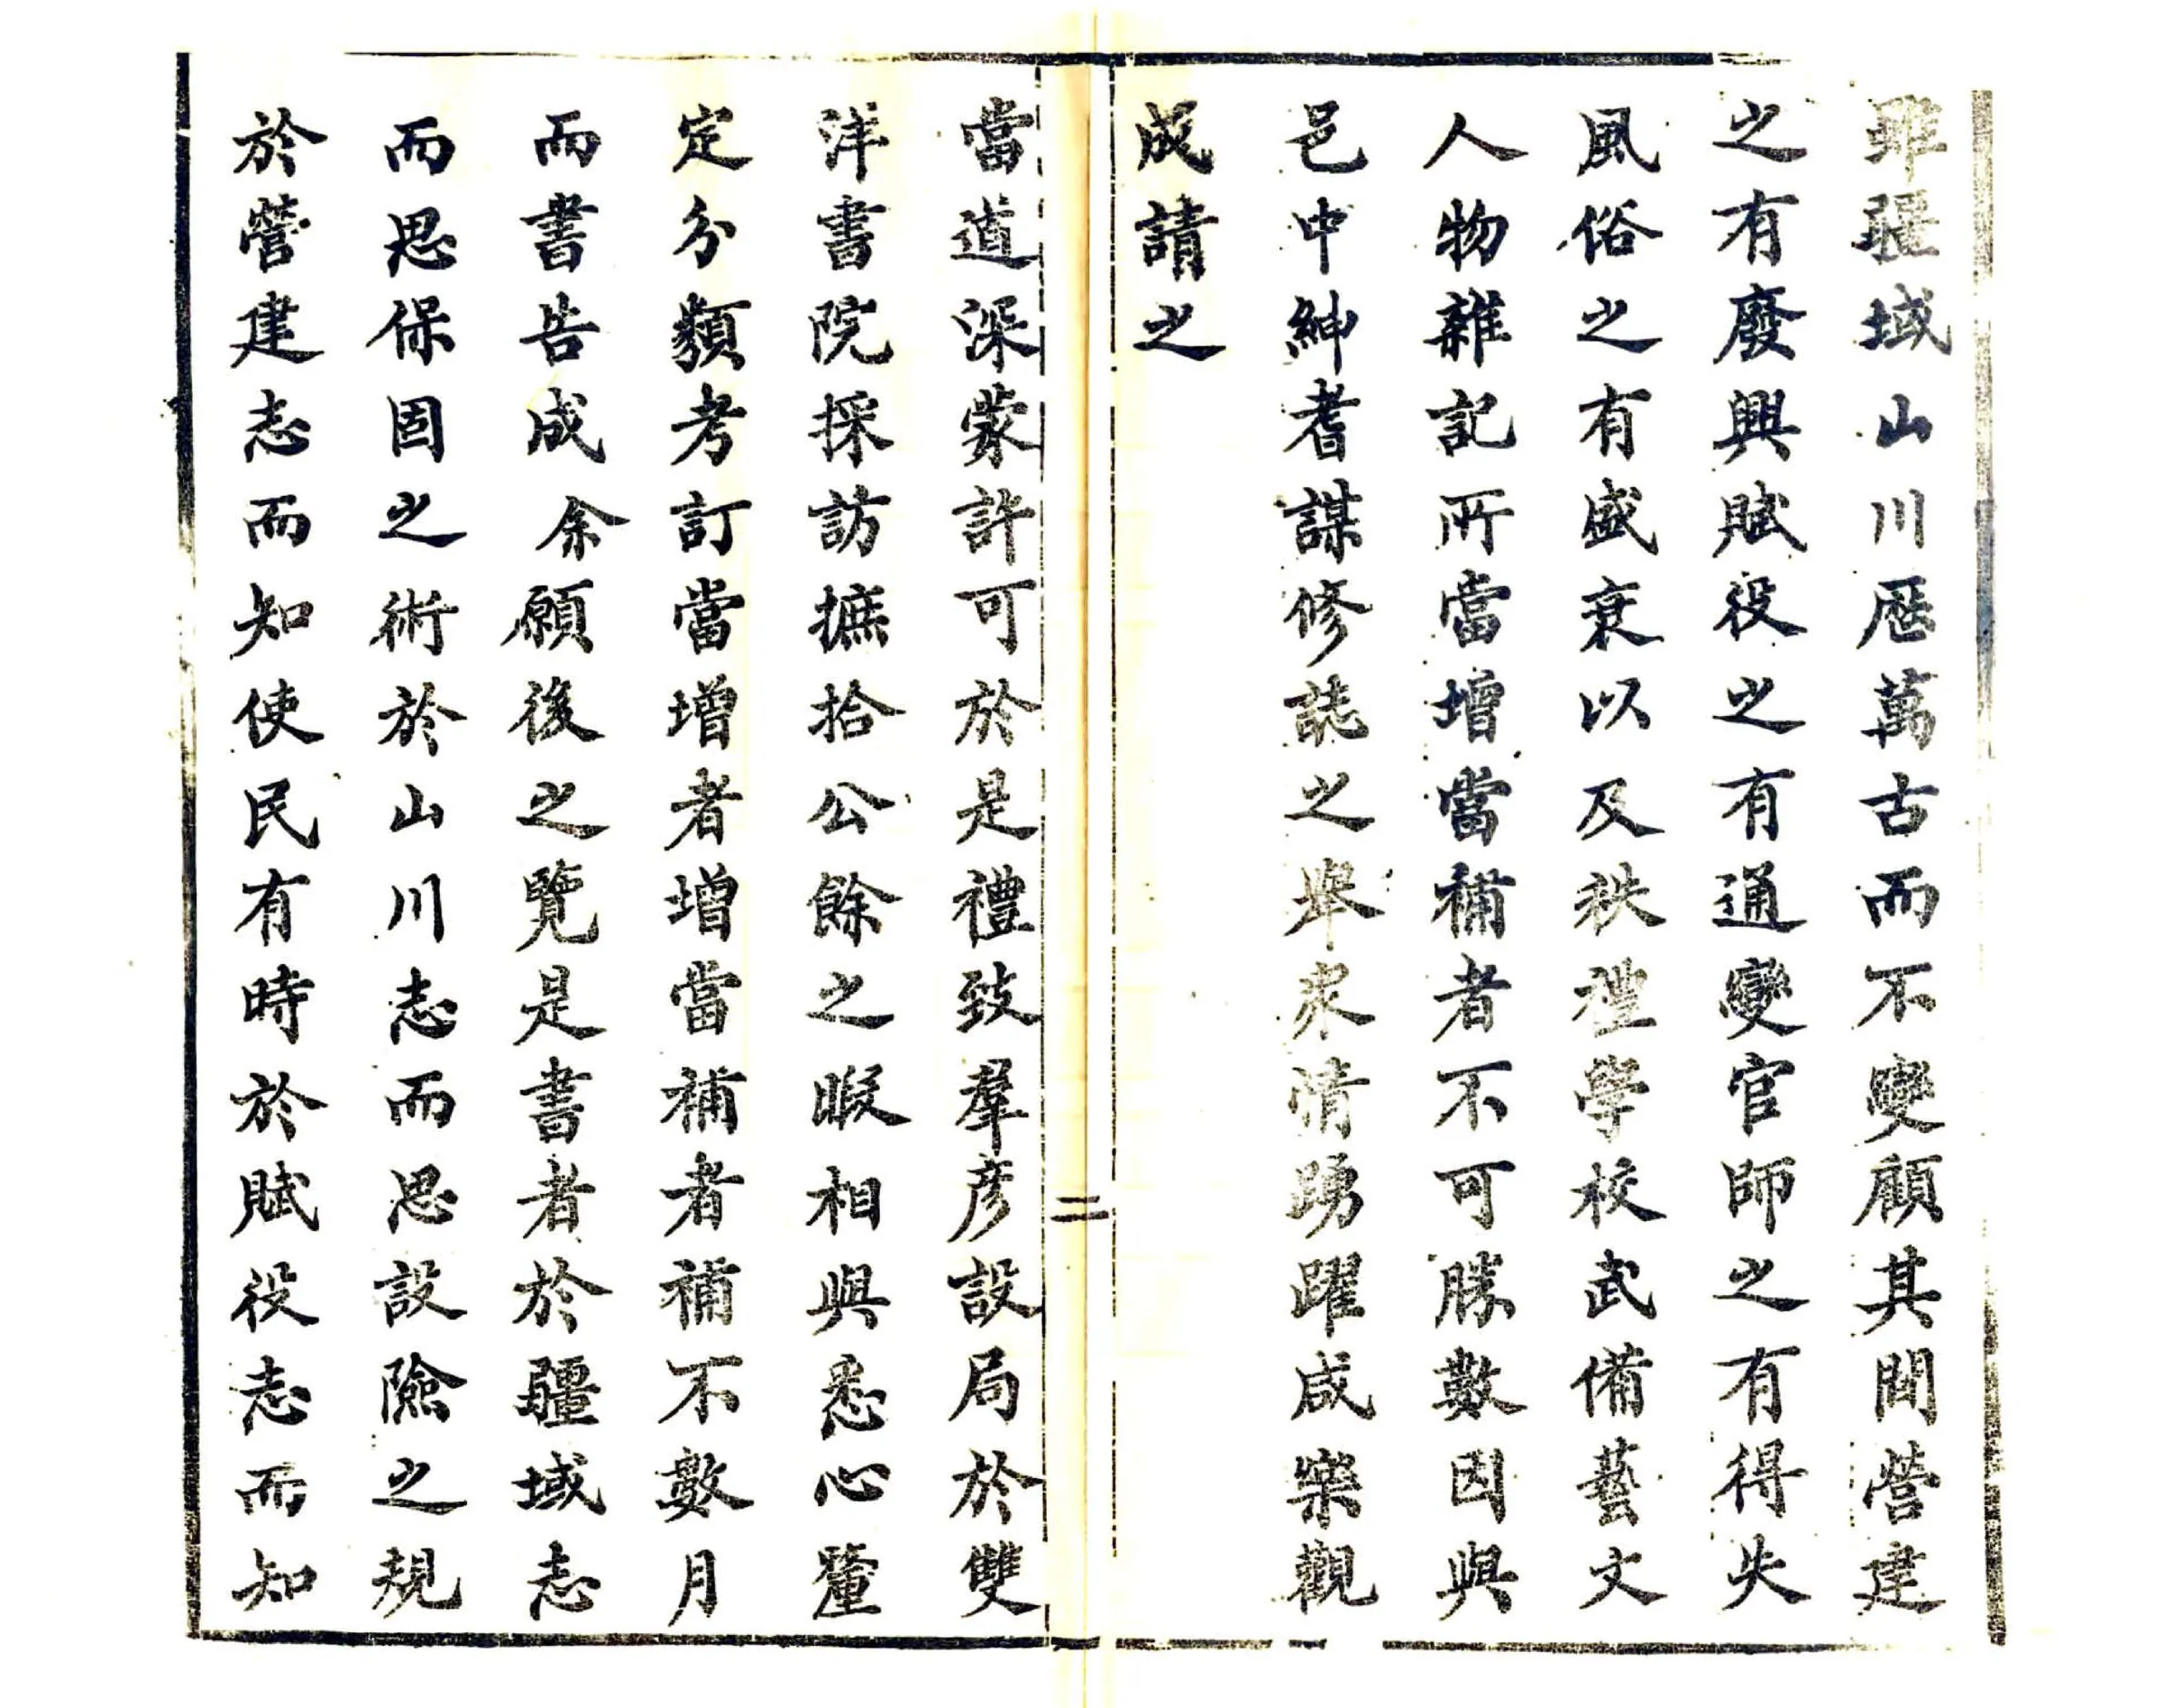 雖疆域山川歷萬古而不變顧其間營建
之有廢興賦役之有通變官師之有得失
風俗之有盛衰以及秩禮學校武備藝文
人物雜記所當增當補者不可勝數因與
邑中紳耆謀修誌之舉衆情踴躍咸樂觀
成請之
二
當道深蒙許可於是禮致羣彥設局於雙
洋書院採訪摭拾公餘之暇相與悉心釐
定分類考訂當增者增當補者補不數月
而書告成余願後之覽是書者於疆域志
而思保固之術於山川志而思設險之規
於營建志而知使民有時於賦役志而知